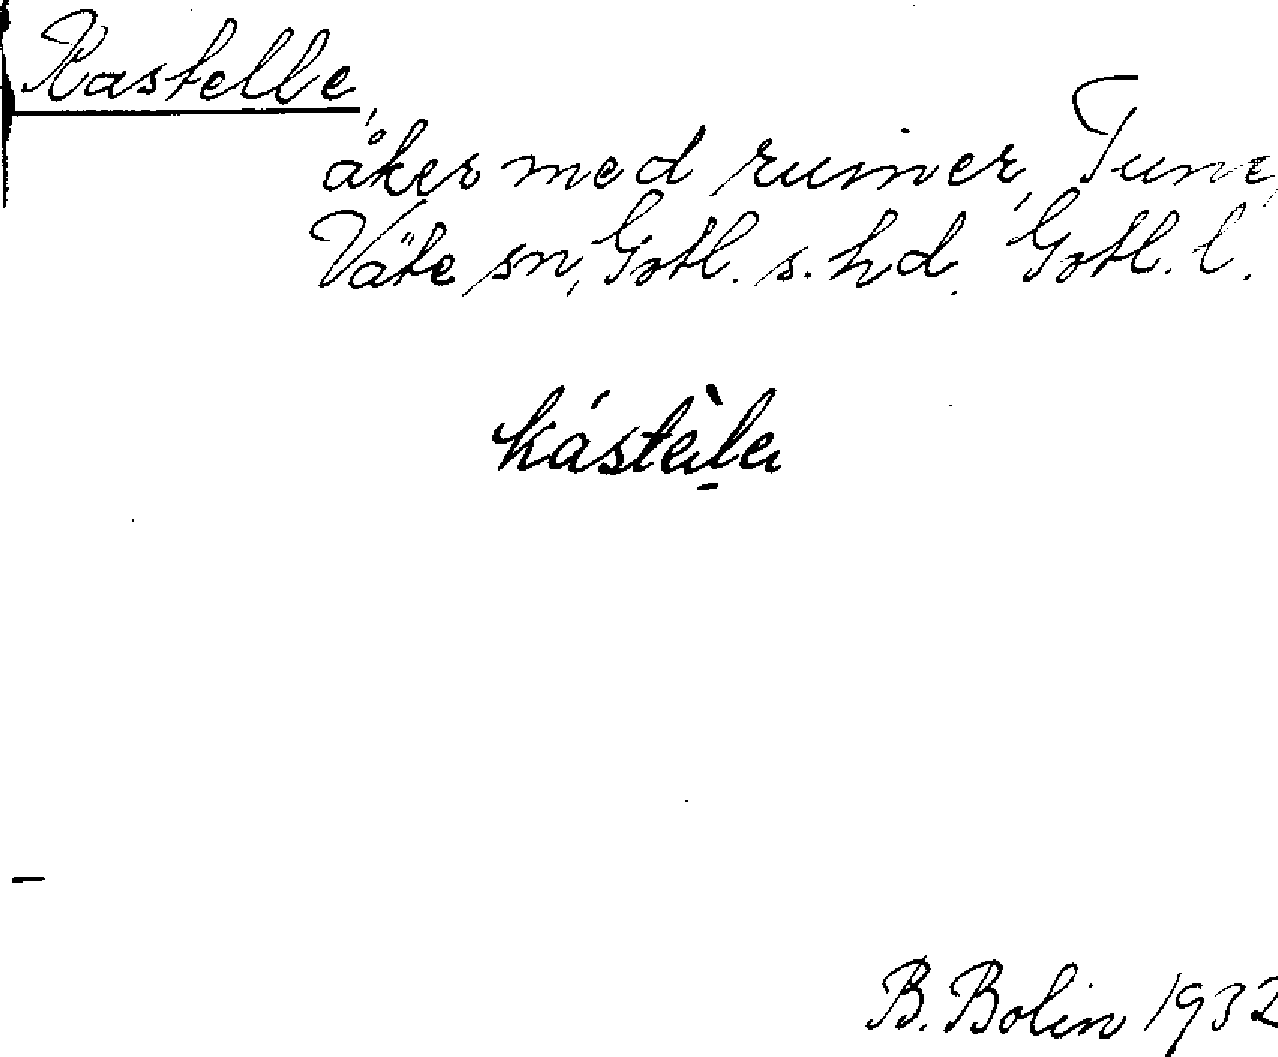 Kastelle,
åker med ruiner, Tune,
Väte sn, Gotl. s. hd. Gotl. l.
kástèla
B. Bolin 1932